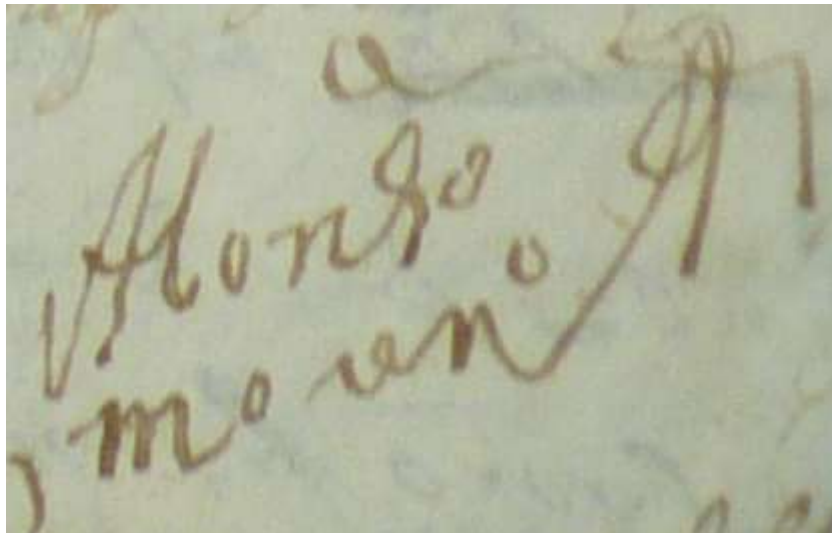 Alonso
moreno